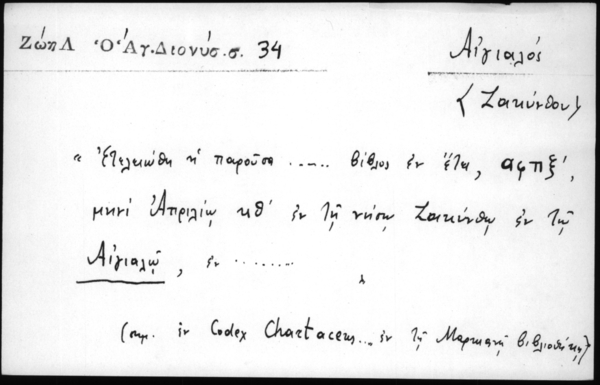 Ζώη Λ Ὁ Ἅγ. Διονύσ. σ. 34
Αἰγιαλός
(Ζακύνθου)
« Ἐτελειώθη ἡ παροῦσα ...... βίβλος ἐν ἔτει, αφπξ´,
μηνὶ Ἀπριλίῳ κθ´ ἐν τῇ νήσῳ Ζακύνθῳ ἐν τῷ
Αἰγιαλῷ, ἐν ........ »
(σημ. ἐν Codex Chartaceus... ἐν τῇ Μαρκιανῇ βιβλιοθήκῃ)